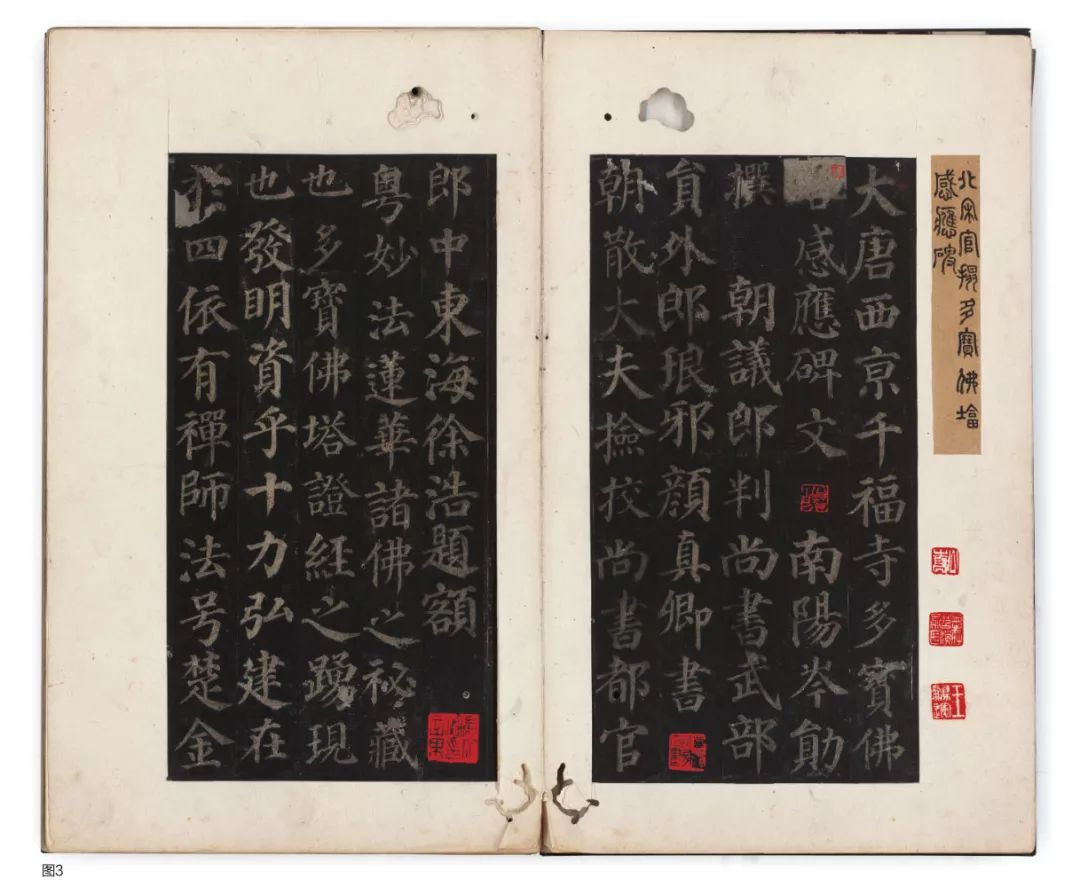 北宋官搨多寶佛塔
感應碑
大唐西京千福寺多寶佛
感應碑文 南陽岑勛
撰 朝議郎判尚書武部
負外郎琅邪顏真卿書
朝散大夫撿挍尚書都官
郎中東海徐浩題額
粵妙法蓮華諸佛之秘藏
也多寶佛塔證經之踴現
也發明資乎十力弘建在
於四依有禪師法号楚金
图3